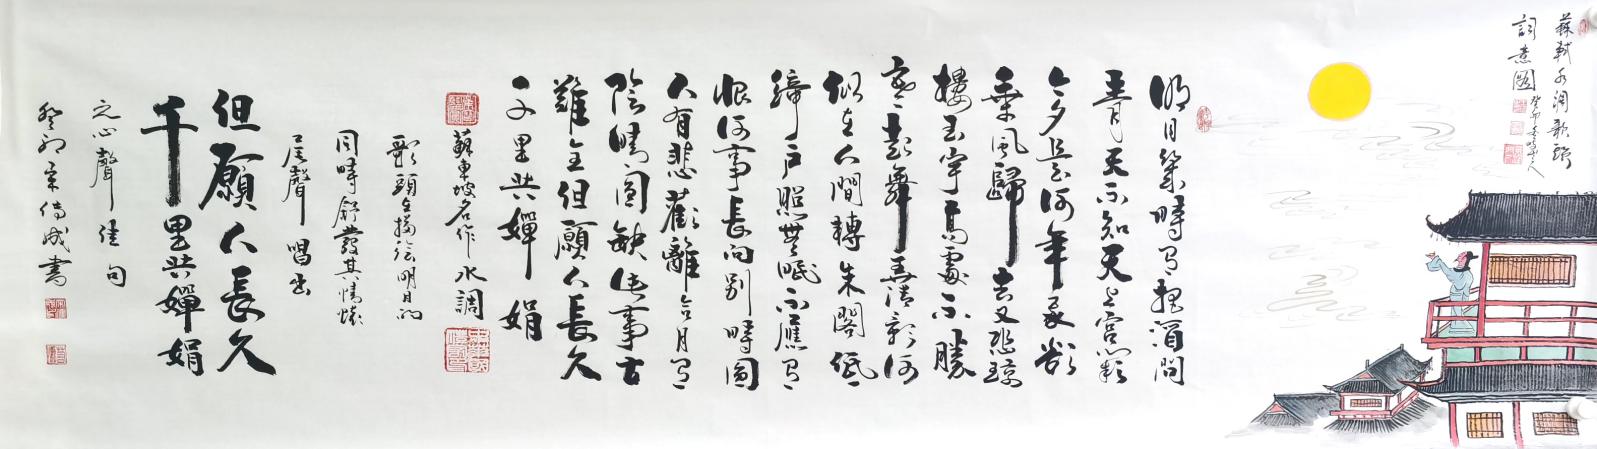 蘇軾水調歌頭
詞意圖
癸卯
明月幾時有把酒問
青天不知天上宮闕
今夕是何年我欲
乘風歸去又恐瓊
樓玉宇高處不勝
寒起舞弄清影何
似在人間轉朱閣低
綺戶照無眠不應有
恨何事長向別時圓
人有悲歡離合月有
陰晴圓缺此事古
難全但願人長久
千里共嬋娟
蘇東坡名作水調
歌頭全詠明月的
同時舒發其情懷
尾聲唱出
但願人長久
千里共嬋娟
之心聲佳句
癸卯書